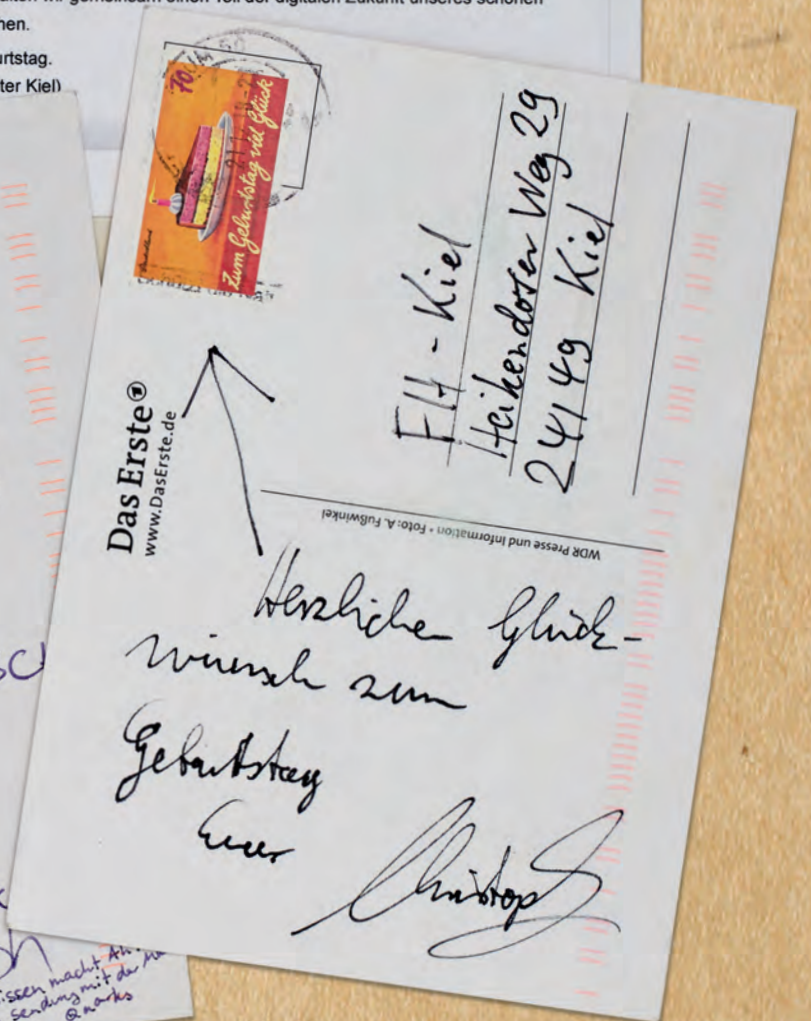 wir gemeinsam einen Teil der digitalen Zukunft unseres schönen
hen.
urtstag.
ter Kiel)
70
Deutschland
Zum Geburtstag viel Glück
Das Erste
www.DasErste.de
FH - Kiel
Heikendorfer Weg 29
24149 Kiel
WDR Presse und Information • Foto: A. Fußwinkel
Herzlichen Glück-
wunsch zum
Geburtstag
Euer
Christoph
issen macht Ah
Sendung mit der Ma
Quarks